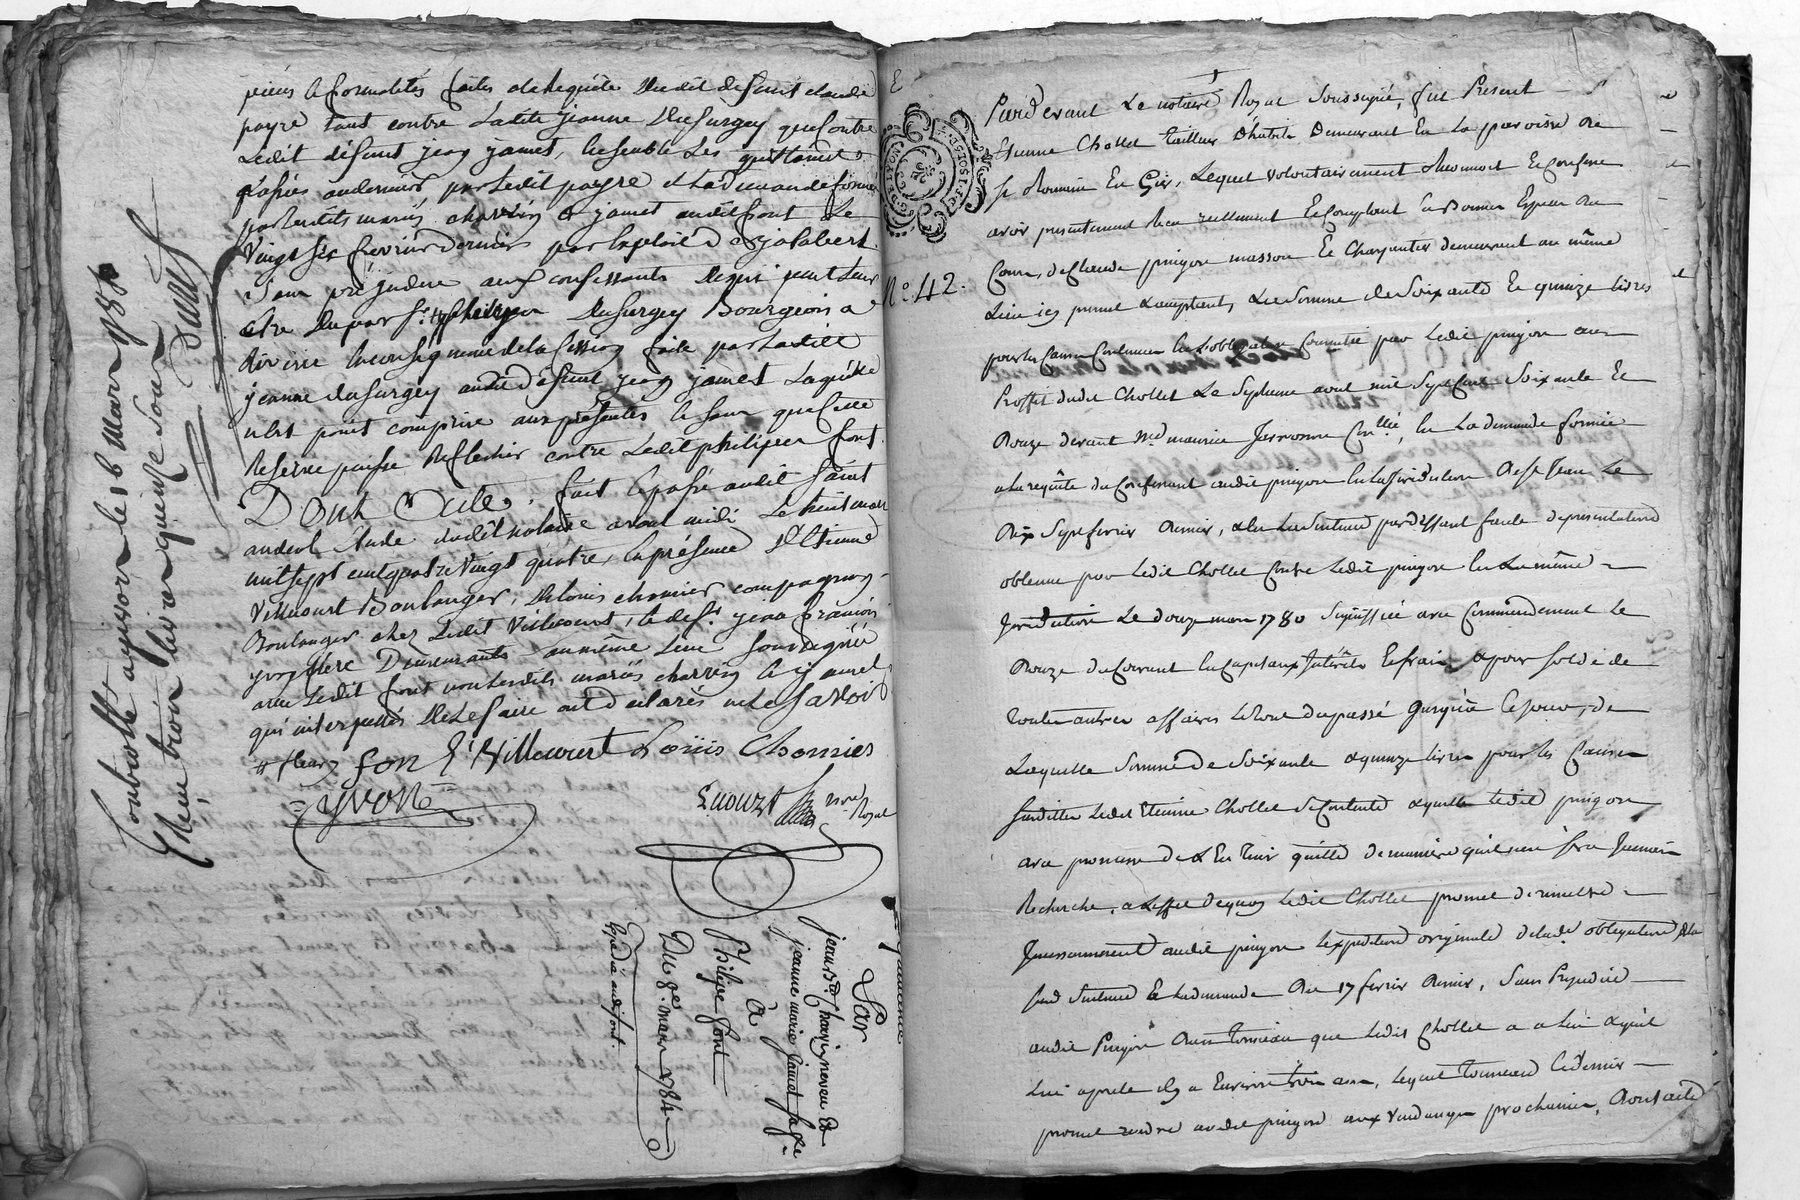 pièces & formalités faites à la Requête dudit défunt claude
payre tant contre ladite jeanne Dufurgey que Contre
Ledit défunt jean jamet, Ensemble Les quittances
passées au dernier par Ledit payre & La demande formée
par Lesdits mariés charvin & jamet audit font Le
vingt six fevrier dernier par Exploit de jalabert
Sans préjudice aux confessants de qui peut Leur
être du par Sr. philippe Dufurgey Bourgeois à
faite par Ladite
jeanne dufurgey audit défunt jean jamet Laquelle
n'est point comprise aux présentes & sans que Cette
Reserve puisse Reflechir contre Ledit philippe font.
Dont Acte, fait & passé audit Saint
andeol Etude dudit notaire avant midi Le huit mars
mil sept cent quatre vingt quatre, En présence d'Etienne
Villecourt Boulanger, & Louis chomier compagnon
Boulanger chez Ledit Villecourt, & de Sr. jean françois
yvon Demeurants au même Lieu soussignés
avec Ledit font non Lesdits mariés charvin & jamet
qui interpellés de Le faire ont déclarés ne Le savoir
font E Villecourt Loüis Chomier
yvon
nore Royal
Controllé à givors le 16 Mars 1784
Reçu trois livres quinze sous
Duras
Quittance
Par
jean Bd. Charvin neveu &
jeanne marie jamet sa fe.
à
Philipe font
Du 8e. mars 1784
Expédié audit font
No. 42.
Pardevant Le notaire Royal Soussigné, fut Present
Etienne Chollet tailleur d'habits Demeurant En La paroisse de
St Romain En Gier, Lequel volontairement Reconnoit & Confesse
avoir presentement Reçu reellement & Comptant En Bonnes Especes de
Cours, de Claude pinjon masson & Charpentier demeurant au même
Lieu icy present & acceptant, La Somme de Soixante & quinze livres
pour les Causes Contenues En L'obligation Consentie par Ledit pinjon au
Proffit dudit Chollet Le Septieme aout mil Sept Cent Soixante &
Onze devant Me. maurice, En La demande formée
a La requête du Confessant audit pinjon En La Juridiction de St Jean Le
Dix Sept fevrier dernier, & En La Sentence par deffaut faute de presentation
obtenue par Ledit Chollet Contre Ledit pinjon En La même
Juridiction Le douze mars 1780 Signiffiée avec Commandement Le
Onze du Courant En Capitaux Intérêts & frais & pour Solde de
toutes autres affaires Le tout du passé Jusqu'à Ce jour, de
Laquelle Somme de Soixante & quinze livres pour les Causes
Susdittes Ledit Etienne Chollet Se Contente & quitte Ledit pinjon
avec promesse de L'En tenir quitte de maniere qu'il n'en sera Jamais
Recherché, a L'effet de quoy Ledit Chollet promet de remettre
Incessamment audit pinjon L'expedition originale de Lade. obligation, de La
Sude. Sentence & La demande du 17 fevrier dernier, Sans Prejudice
audit Pinjon d'un tonneau que Ledit Chollet a a Lui & qu'il
Lui a preté il y a Environ trois ans, Lequel tonneau Ce dernier
promet rendre audit pinjon aux Vendanges prochaines, Dont acte